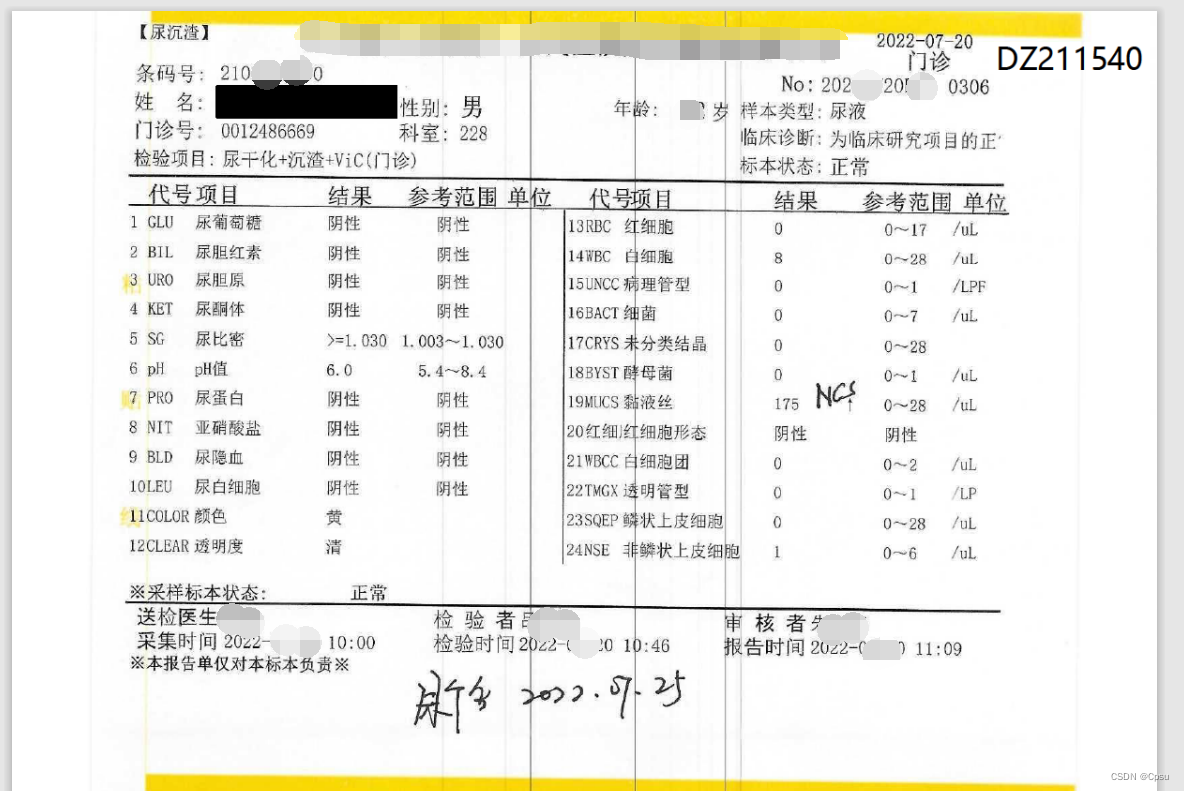 【尿沉渣】
2022-07-20
门诊
DZ211540
条码号: 210 0
No: 202 205 0306
姓 名:
性别: 男
年龄: 岁
样本类型: 尿液
门诊号: 0012486669
科室: 228
临床诊断: 为临床研究项目的正
检验项目: 尿干化+沉渣+ViC(门诊)
标本状态: 正常
代号 项目 结果 参考范围 单位 代号 项目 结果 参考范围 单位
1 GLU 尿葡萄糖 阴性 阴性
2 BIL 尿胆红素 阴性 阴性
3 URO 尿胆原 阴性 阴性
4 KET 尿酮体 阴性 阴性
5 SG 尿比密 >=1.030 1.003~1.030
6 pH pH值 6.0 5.4~8.4
7 PRO 尿蛋白 阴性 阴性
8 NIT 亚硝酸盐 阴性 阴性
9 BLD 尿隐血 阴性 阴性
10LEU 尿白细胞 阴性 阴性
11COLOR 颜色 黄
12CLEAR 透明度 清
13RBC 红细胞 0 0~17 /uL
14WBC 白细胞 8 0~28 /uL
15UNCC 病理管型 0 0~1 /LPF
16BACT 细菌 0 0~7 /uL
17CRYS 未分类结晶 0 0~28
18BYST 酵母菌 0 0~1 /uL
19MUCS 黏液丝 175 NCS ↑ 0~28 /uL
20红细 红细胞形态 阴性 阴性
21WBCC 白细胞团 0 0~2 /uL
22TMGX 透明管型 0 0~1 /LP
23SQEP 鳞状上皮细胞 0 0~28 /uL
24NSE 非鳞状上皮细胞 1 0~6 /uL
粘
贴
线
※采样标本状态: 正常
送检医生
检 验 者
审 核 者
采集时间 2022- 10:00
检验时间 2022- 20 10:46
报告时间 2022- 0 11:09
※本报告单仅对本标本负责※
2022.07.25
CSDN @Cpsu